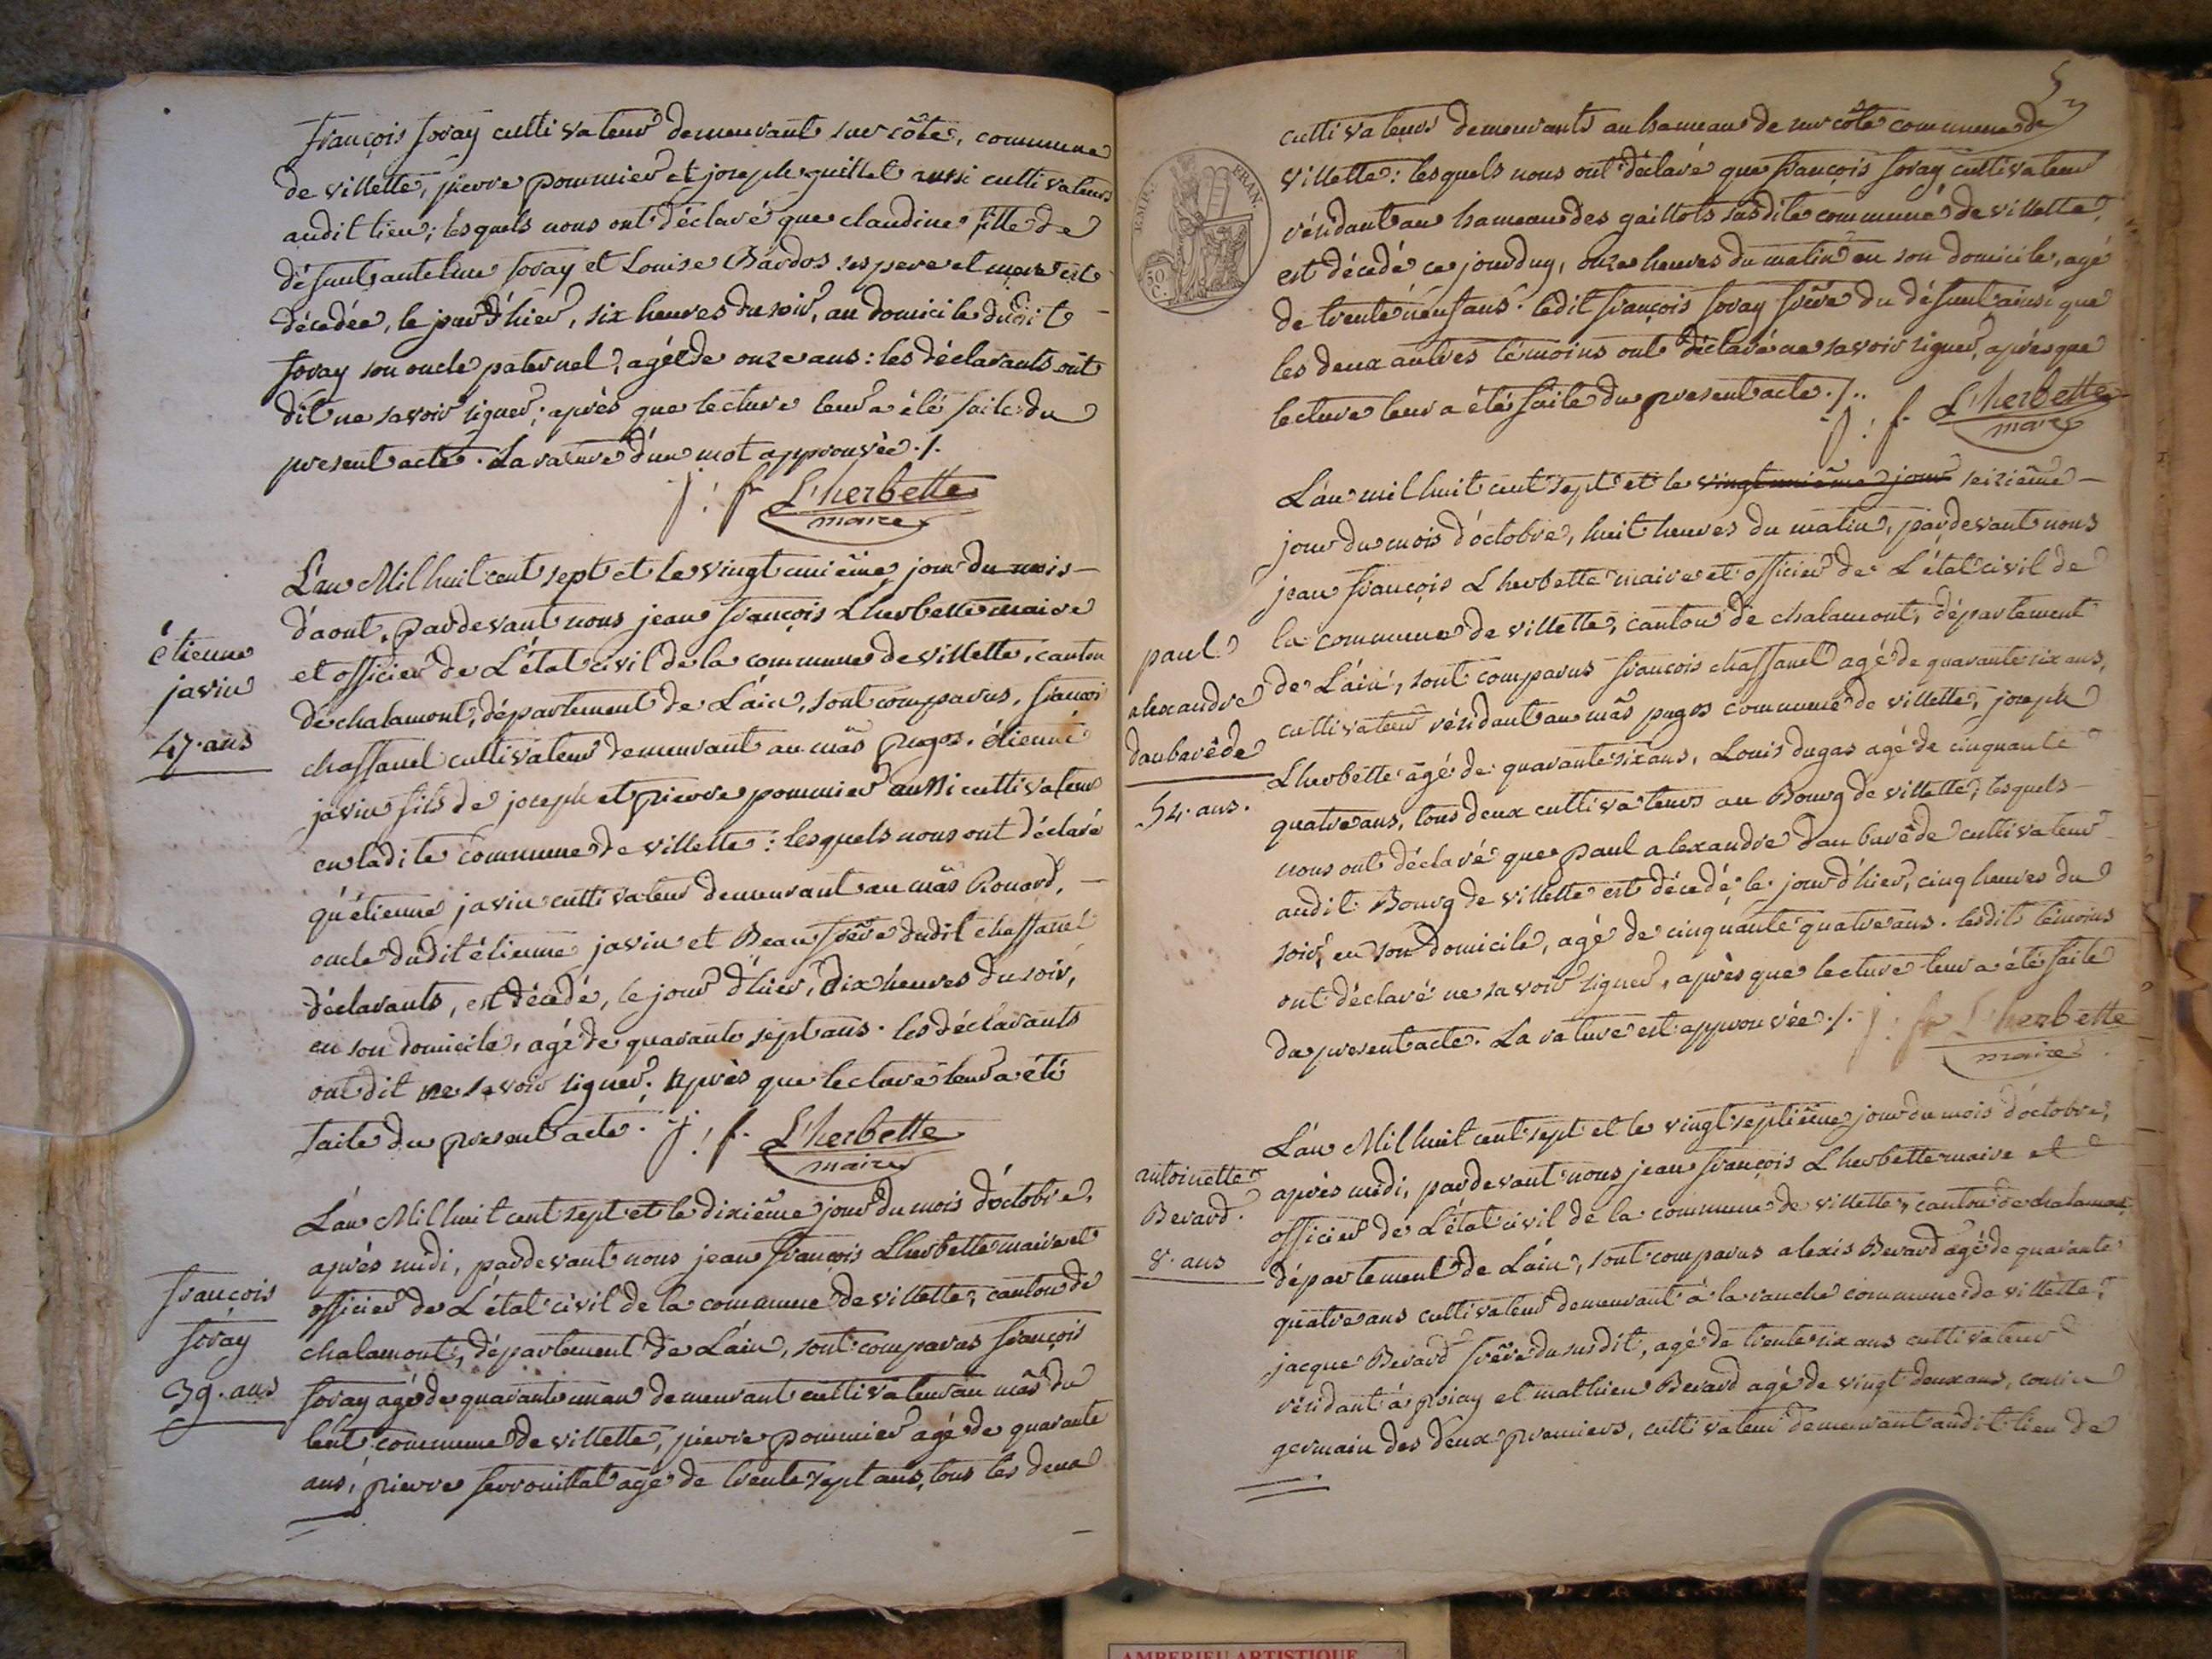 françois foray cultivateur demeurant sur côte, commune
de villette, pierre pommier et joseph guillet aussi cultivateurs
audit lieu; lesquels nous ont déclaré que claudine fille de
défunt antelme foray et Louise Bardos ses pere et mere est
décédée, le jour d'hier, six heures du soir, au domicile dudit
foray son oncle paternel, agée de onze ans: les déclarants ont
dit ne savoir signer; après que lecture leur a été faite du
present acte. La rature d'un mot approuvée ./.
j: f. L'herbette
maire
L'an Mil huit cent sept et le vingt unième jour du mois
d'aout, pardevant nous jean françois Lherbette maire
et officier de L'état civil de la commune de villette, canton
de chalamont, département de L'ain, sont comparus, françois
chaffanel cultivateur demeurant au mâs pugos, étienne
javin fils de joseph et pierre pommier aussi cultivateur
en ladite commune de villette: lesquels nous ont déclaré
qu'étienne javin cultivateur demeurant au mâs Ronard,
oncle dudit étienne javin et Beaufrère dudit chaffanel
déclarants, est décédé, le jour d'hier, dix heures du soir,
en son domicile, agé de quarante sept ans. les déclarants
ont dit ne savoir signer; après que lecture leur a été
faite du present acte. j: f. L'herbette
maire
étienne
javin
47. ans
L'an Mil huit cent sept et le dixième jour du mois d'octobre,
après midi, pardevant nous jean françois Lherbette maire et
officier de L'état civil de la commune de villette, canton de
chalamont, département de L'ain, sont comparus françois
foray agé de quarante un an demeurant cultivateur au mâs du
lent commune de villette, pierre pommier agé de quarante
ans, pierre ferrouillat agé de trente sept ans, tous les deux
françois
foray
39. ans
5
cultivateurs demeurants au hameau de sur côte commune de
villette: lesquels nous ont déclaré que françois foray cultivateur
résidant au hameau des gaillots susdite commune de villette,
est décédé ce jourduy, onze heures du matin en son domicile, agé
de trente neuf ans. ledit françois foray frère du défunt ainsi que
les deux autres témoins ont déclaré ne savoir signer, après que
lecture leur a été faite du present acte ./..
j: f. L'herbette
maire
EMP. FRAN.
50 C.
L'an mil huit cent sept et le vingt unième jour seizième
jour du mois d'octobre, huit heures du matin, pardevant nous
jean françois Lherbette maire et officier de L'état civil de
la commune de villette, canton de chalamont, département
de L'ain, sont comparus françois chaffanel agé de quarante six ans,
cultivateur résidant au mâs pugos commune de villette, joseph
Lherbette agé de quarante six ans, Louis dugas agé de cinquante
quatre ans, tous deux cultivateurs au Bourg de villette, lesquels
nous ont déclaré que paul alexandre daubarêde cultivateur
audit Bourg de villette est décédé, le jour d'hier, cinq heures du
soir, en son domicile, agé de cinquante quatre ans. lesdits témoins
ont déclaré ne savoir signer, après que lecture leur a été faite
du present acte. La rature est approuvée ./. j: f. L'herbette
maire
paul
alexandre
daubarêde
54. ans.
L'an Mil huit cent sept et le vingt septième jour du mois d'octobre,
après midi, pardevant nous jean françois Lherbette maire et
officier de L'état civil de la commune de villette, canton de chalamont
département de L'ain, sont comparus alexis Berard agé de quarante
quatre ans cultivateur demeurant à la ranche commune de villette,
jacque Berard frère du susdit, agé de trente six ans cultivateur
résidant à priay et mathieu Berard agé de vingt deux ans, cousin
germain des deux premiers, cultivateur demeurant audit lieu de
antoinette
Berard.
8. ans
AMBERIEU ARTISTIQUE